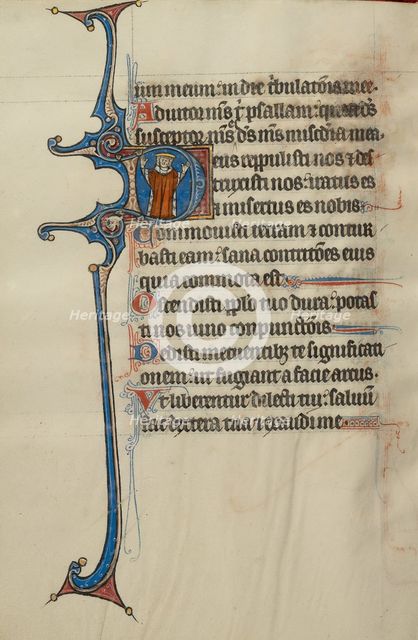 um meum: in die tribulatõis mee.
Adiutor m̃s t̾ psallam: quia ds̃
susceptor m̃s es ds̃ m̃s mis̃cdia mea
Deus reppulisti nos et des
truxisti nos: iratus es
et misertus es nobis
Commouisti terram et contur
basti eam: sana contritiões eius
quia commota est
Ostendisti pplo tuo dura: potas
ti nos uino conpunctiõis
Dedisti metuentibz te significati
onem: ut fugiant a facie arcus
Ut liberentur dilecti tui: saluum
fac dextera tua et exaudi me
heritage
Heritage
Heritage